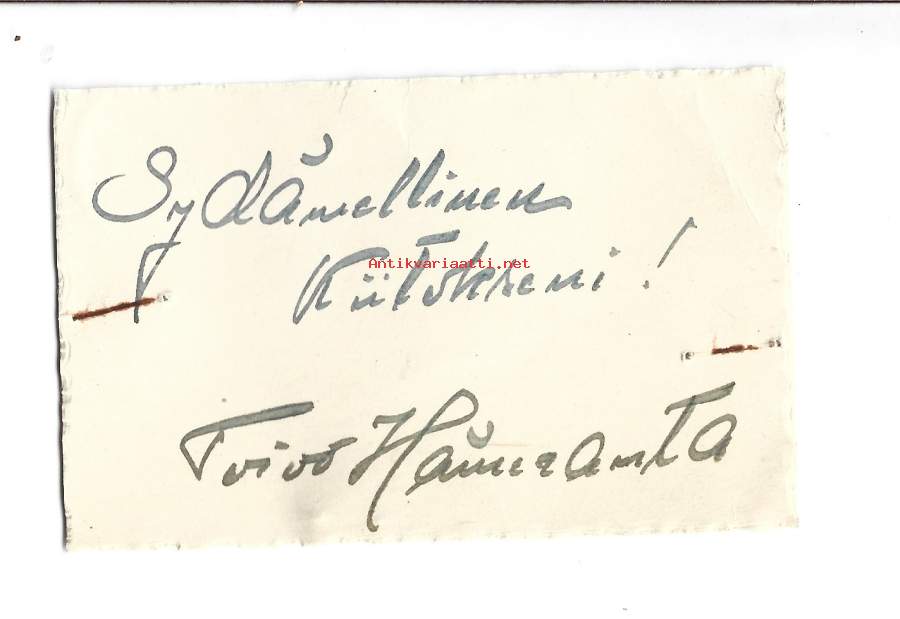 Sydämellinen
Kiitokseni!
Antikvariaatti.net
Toivo Hämeranta